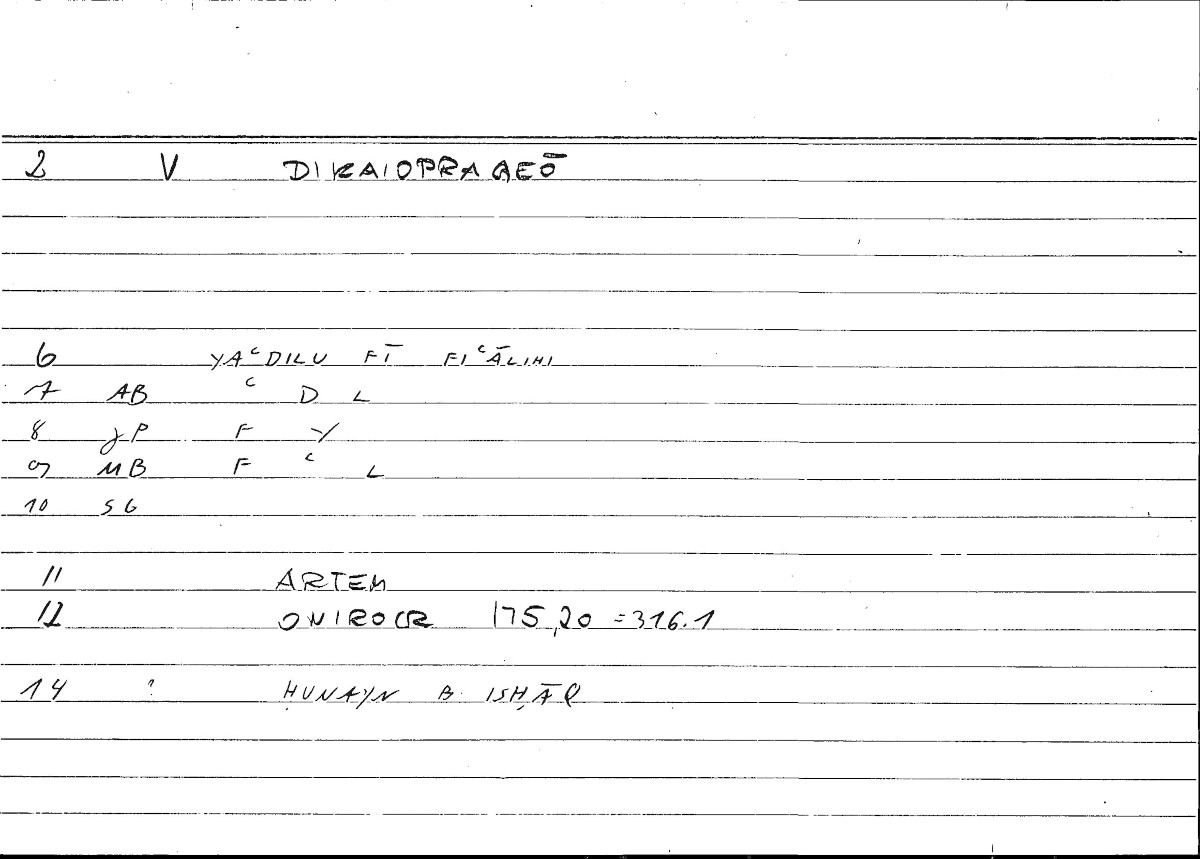 2 V DIKAIOPRAGEŌ
6 YAʿDILU FĪ FIʿĀLIHI
7 AB ʿ D L
8 JP F Y
9 MB F ʿ L
10 SG
11 ARTEM
12 ONIROCR 175,20 = 316.1
14 ? ḤUNAYN B. ISḤĀQ